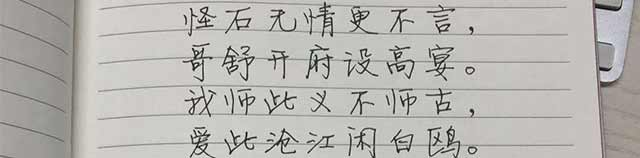 怪石无情更不言，
哥舒开府设高宴。
我师此义不师古，
爱此沧江闲白鸥。